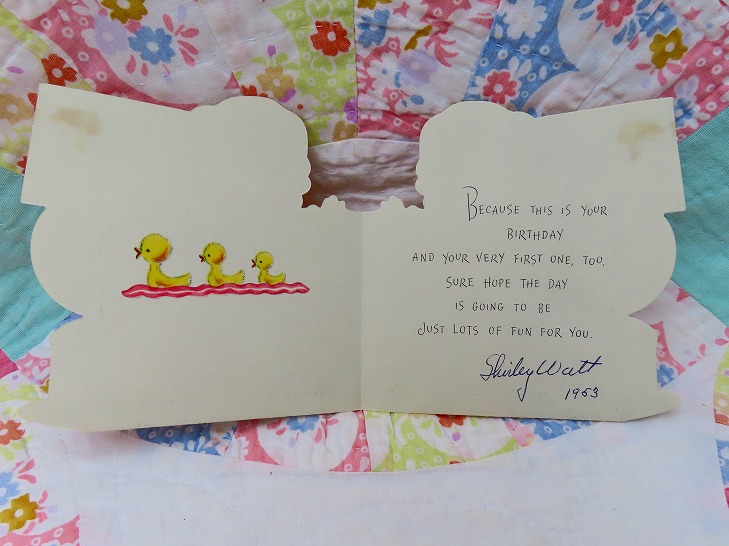 Because this is your
birthday
and your very first one, too,
sure hope the day
is going to be
just lots of fun for you.
Shirley Watt
1953